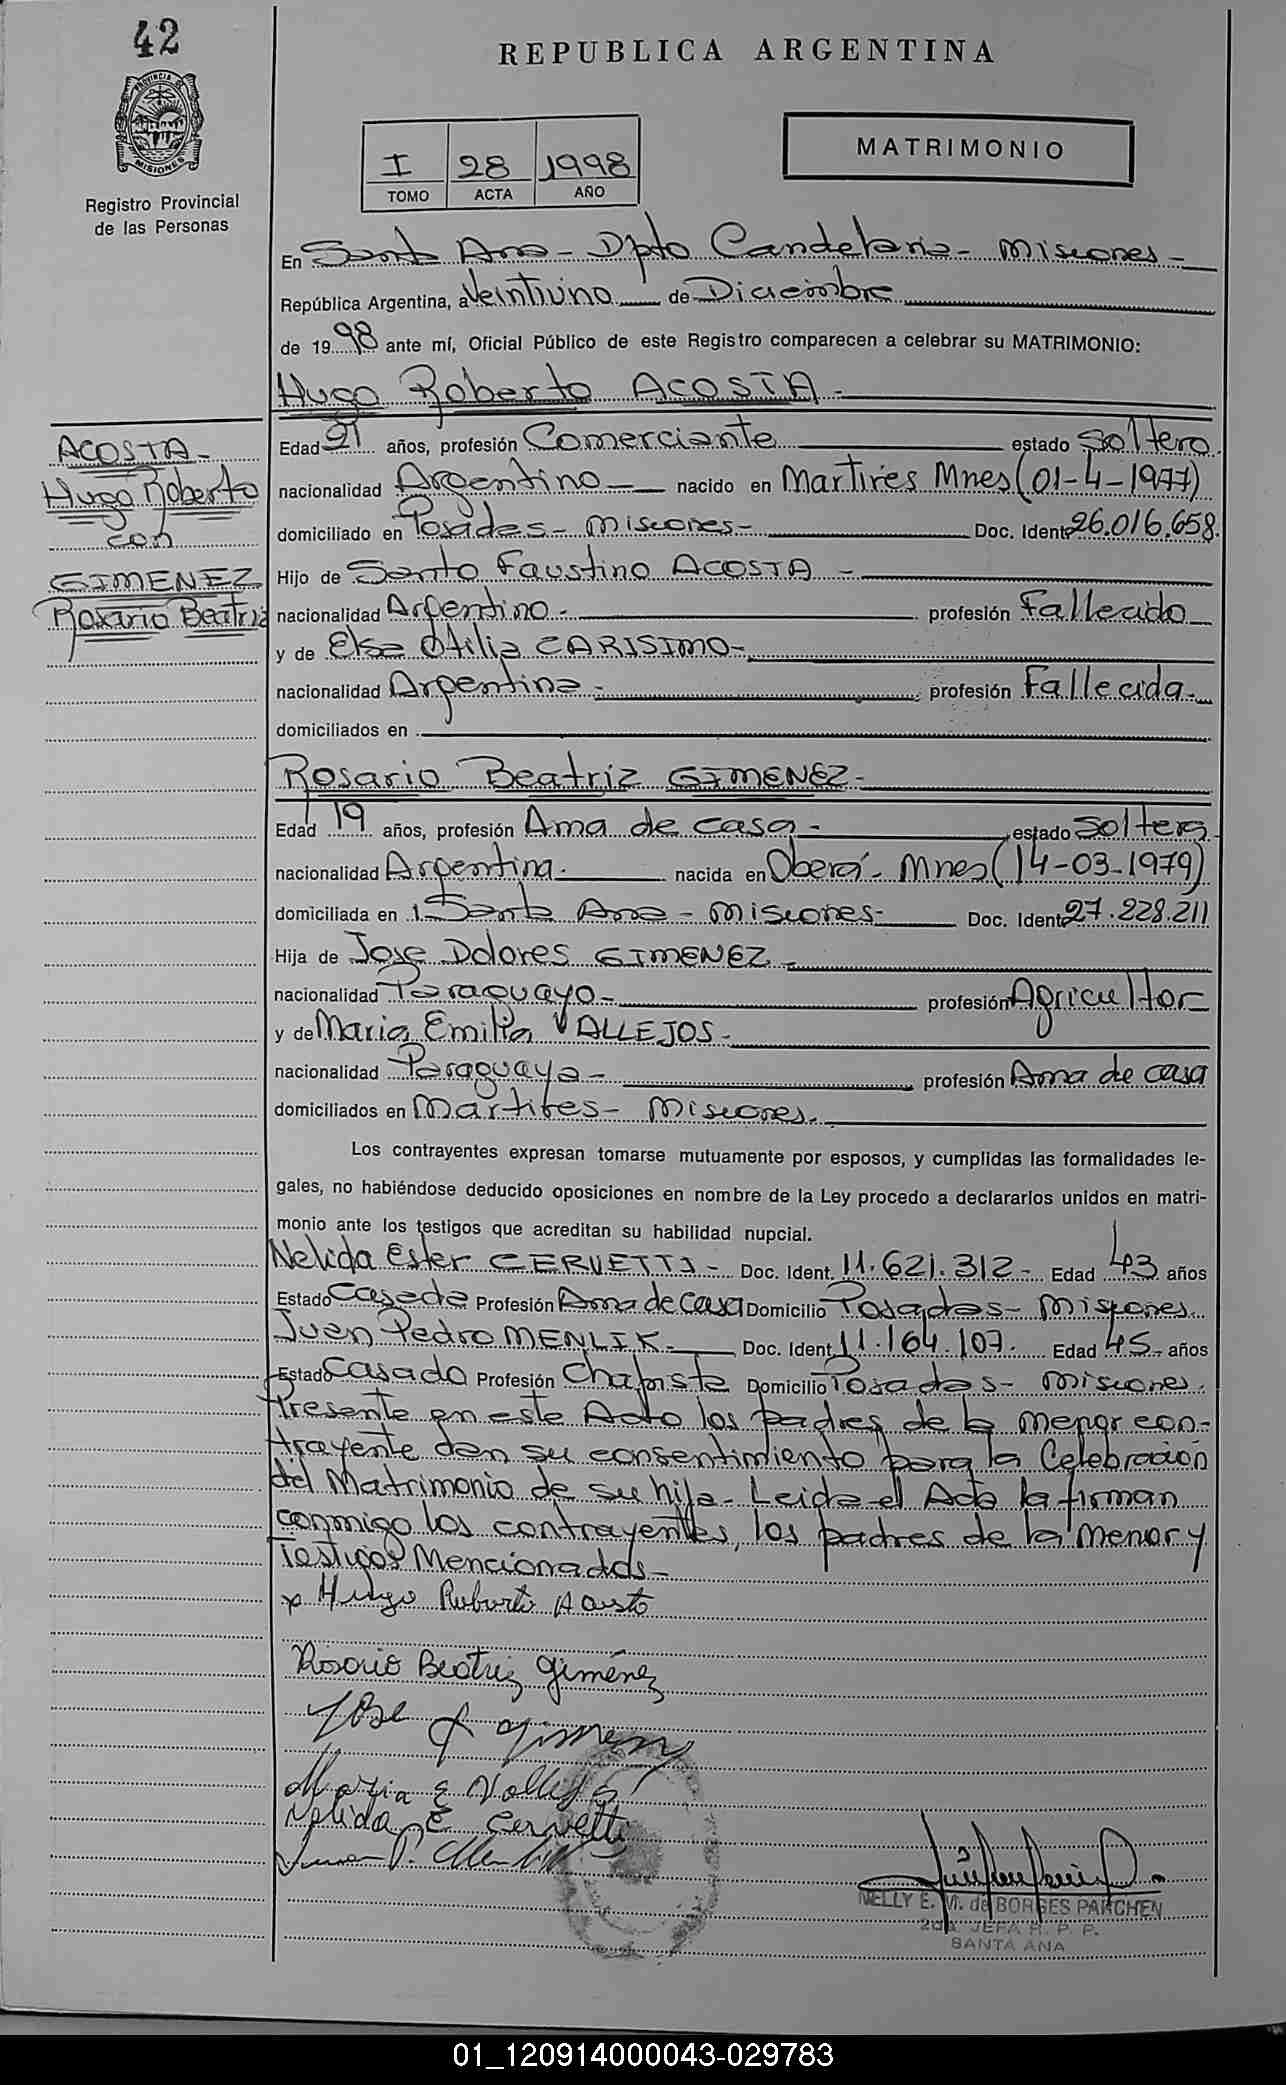 42
REPUBLICA ARGENTINA
PROVINCIA DE
MISIONES
Registro Provincial
de las Personas
I 28 1998
TOMO ACTA AÑO
MATRIMONIO
En Santa Ana - Dpto Candelaria - Misiones -
República Argentina, a Veintiuno de Diciembre
de 1998 ante mí, Oficial Público de este Registro comparecen a celebrar su MATRIMONIO:
Hugo Roberto ACOSTA -
ACOSTA -
Hugo Roberto
con
GIMENEZ
Rosario Beatriz
Edad 21 años, profesión Comerciante estado Soltero
nacionalidad Argentino - nacido en Martires Mnes (01-4-1977)
domiciliado en Posadas - Misiones - Doc. Ident. 26.016.658
Hijo de Santo Faustino ACOSTA -
nacionalidad Argentino - profesión Fallecido
y de Elsa Otilia CARISIMO -
nacionalidad Argentina - profesión Fallecida -
domiciliados en
Rosario Beatriz GIMENEZ -
Edad 19 años, profesión Ama de casa - estado Soltera
nacionalidad Argentina - nacida en Oberá - Mnes (14-03-1979)
domiciliada en Santa Ana - Misiones - Doc. Ident. 27.228.211
Hija de Jose Dolores GIMENEZ -
nacionalidad Paraguayo - profesión Agricultor
y de Maria Emilia VALLEJOS -
nacionalidad Paraguaya - profesión Ama de casa
domiciliados en Martires - Misiones.
Los contrayentes expresan tomarse mutuamente por esposos, y cumplidas las formalidades le-
gales, no habiéndose deducido oposiciones en nombre de la Ley procedo a declararlos unidos en matri-
monio ante los testigos que acreditan su habilidad nupcial.
Nelida Ester CERVETTI - Doc. Ident. 11.621.312 - Edad 43 años
Estado Casada Profesión Ama de Casa Domicilio Posadas - Misiones
Juan Pedro MENLIK - Doc. Ident. 11.164.107. Edad 45 - años
Estado Casado Profesión Chapista Domicilio Posadas - Misiones.
Presente en este Acto los padres de la menor con-
trayente dan su consentimiento para la Celebración
del Matrimonio de su hija - Leida el Acta la firman
conmigo los contrayentes, los padres de la menor y
Testigos Mencionados -
x Hugo Roberto Acosta
Rosario Beatriz Giménez
Jose D Gimenez
Maria E Vallejos
Nelida E Cervetti
Juan P. Menlik
NELLY E. M. de BORGES PARCHEN
2da JEFA R. P. P.
SANTA ANA
01_120914000043-029783